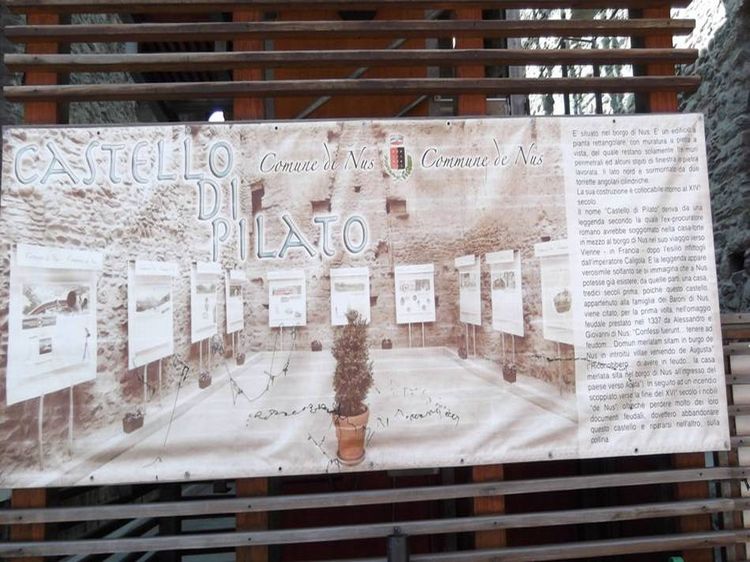 CASTELLO
DI
PILATO
Comune di Nus Commune de Nus
E' situato nel borgo di Nus. E' un edificio a
pianta rettangolare, con muratura a pietra a
vista, del quale restano solamente i muri
perimetrali ed alcuni stipiti di finestra in pietra
lavorata. Il lato nord è sormontato da due
torrette angolari cilindriche.
La sua costruzione è collocabile intorno al XIV°
secolo.
Il nome "Castello di Pilato" deriva da una
leggenda secondo la quale l'ex-procuratore
romano avrebbe soggiornato nella casa-forte
in mezzo al borgo di Nus nel suo viaggio verso
Vienne - in Francia - dopo l'esilio inflittogli
dall'imperatore Caligola. E la leggenda appare
verosimile soltanto se si immagina che a Nus
potesse già esistere, da quelle parti, una casa,
tredici secoli prima, poiché questo castello,
appartenuto alla famiglia dei Baroni di Nus,
viene citato, per la prima volta, nell'omaggio
feudale prestato nel 1337 da Alessandro e
Giovanni di Nus: "Confessi fuerunt... tenere ad
feudom... Domum merlatam sitam in burgo de
Nus in introitu villae veniendo de Augusta"
di avere in feudo... la casa
merlata sita nel borgo di Nus all'ingresso del
paese verso Aosta). In seguito ad un incendio
scoppiato verso la fine del XVI° secolo i nobili
"de Nus", oltre che perdere molto dei loro
documenti feudali, dovettero abbandonare
questo castello e ripararsi nell'altro, sulla
collina.